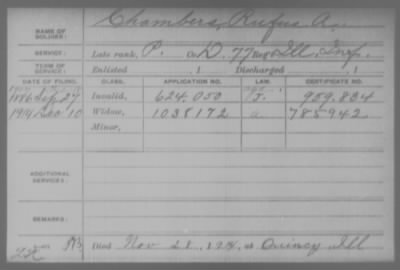 Chambers, Rufus A.
NAME OF SOLDIER:
SERVICE: Late rank, P. Co. D, 77 Reg't Ill. Inf.
TERM OF SERVICE: Enlisted , 1 Discharged , 1
DATE OF FILING. CLASS. APPLICATION NO. LAW. CERTIFICATE NO.
1886 Sep 27 Invalid, 624.050 959.834
1914 Dec 10 Widow, 1038172 785942
Minor,
ADDITIONAL SERVICES:
REMARKS:
Died Nov 28, 1914, at Quincy Ill